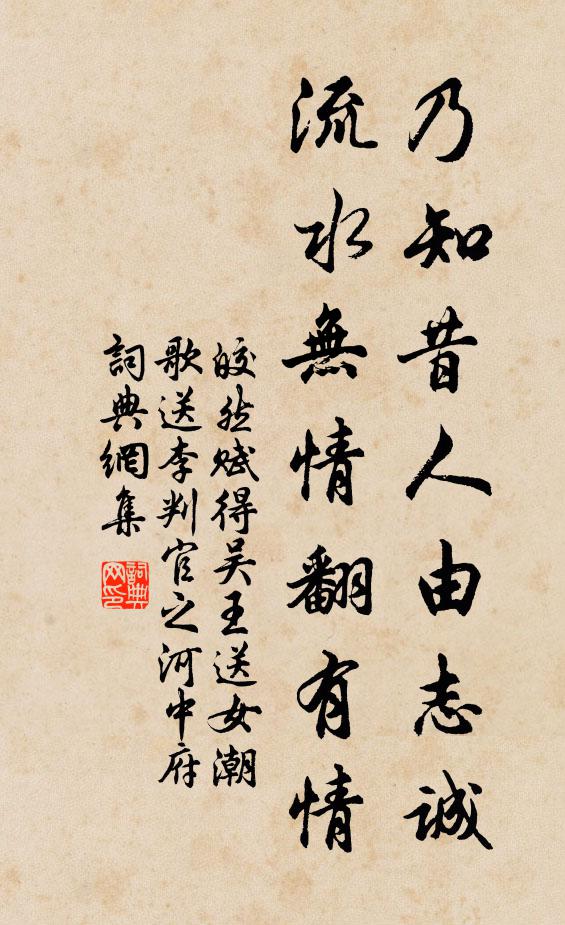 乃知昔人由志誠
流水無情翻有情
皎然賦得吳王送女潮
歌送李判官之河中府
詞典網集
詞典
网印